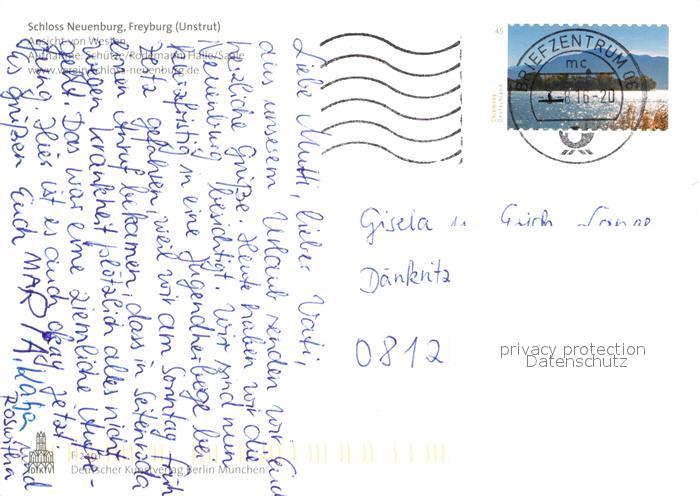 Schloss Neuenburg, Freyburg (Unstrut)
Ansicht von Westen
Aufnahme: Schütze/Rodemann Halle/Saale
www.verein-schloss-neuenburg.de
Liebe Mutti, lieber Vati,
aus unserem Urlaub senden wir Euch
herzliche Grüße. Heute haben wir die
Neuenburg besichtigt. Wir sind nun
kurzfristig in eine Jugendherberge bei
gefahren, weil wir am Sonntag früh
einen Anruf bekamen, dass in Seitenroda
wegen Krankheit plötzlich alles nicht
geht. Das war eine ziemliche
Hier ist es auch okay jetzt.
Es grüßen Euch MARTA, Katja und
Roswitha
45
Chiemsee
Deutschland
BRIEFZENTRUM 06
mc
8.16-20
Gisela u. Erich Lange
Dänkritz
0812
privacy protection
Datenschutz
DKV
Deutscher Kunstverlag Berlin München